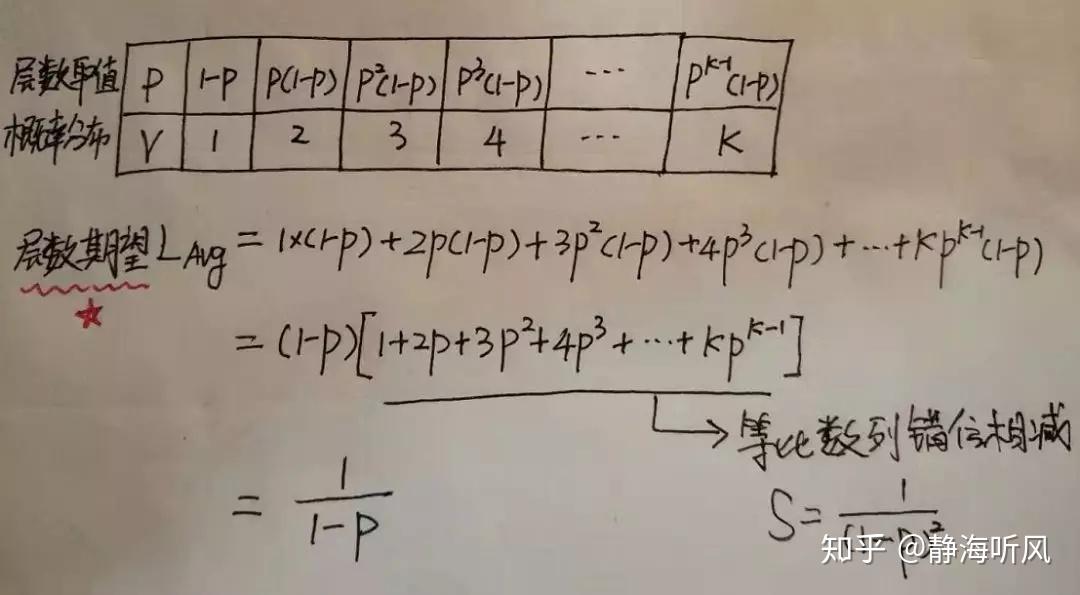 层数取值 P 1-P P(1-P) P²(1-P) P³(1-P) ... P^{K-1}(1-P)
概率分布 V 1 2 3 4 ... K
层数期望 L_{Avg} = 1×(1-P)+2P(1-P)+3P²(1-P)+4P³(1-P)+...+KP^{K-1}(1-P)
= (1-P)[1+2P+3P²+4P³+...+KP^{K-1}]
→ 等比数列错位相减
= \frac{1}{1-P} S=\frac{1}{(1-P)^2}
知乎 @静海听风